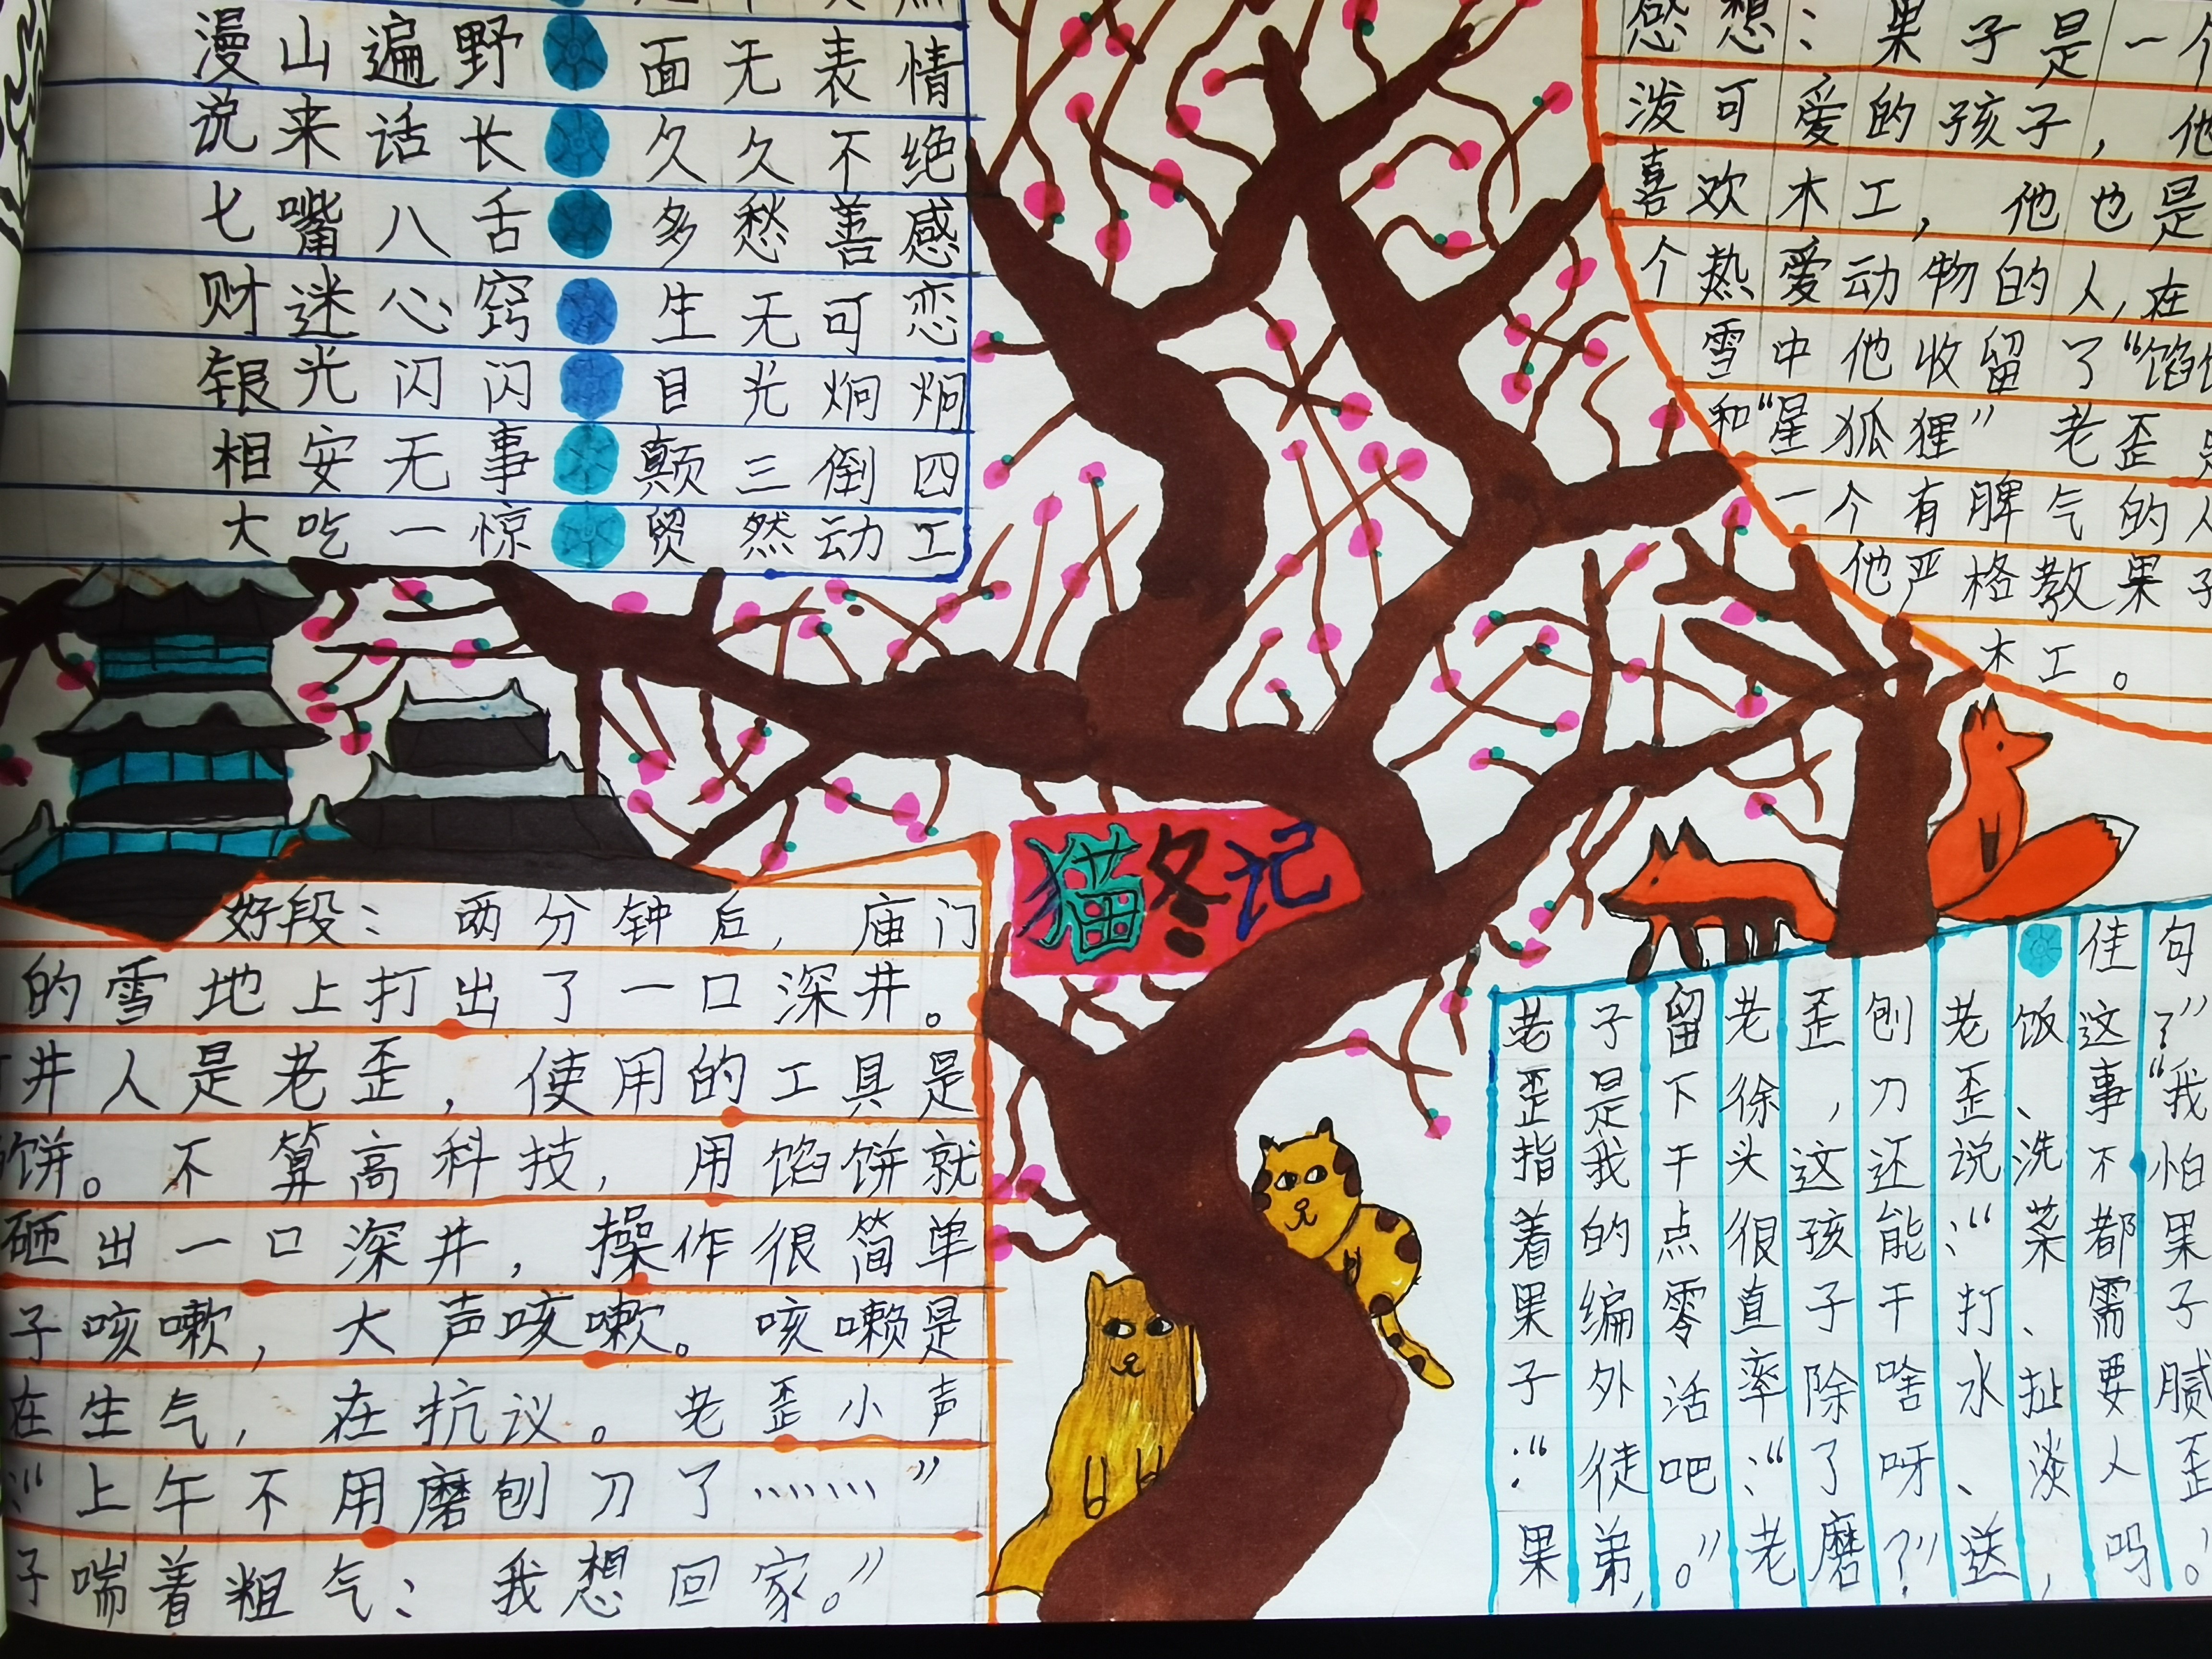 漫山遍野 面无表情
说来话长 久久不绝
七嘴八舌 多愁善感
财迷心窍 生无可恋
银光闪闪 目光炯炯
相安无事 颠三倒四
大吃一惊 贸然动工
感想：果子是一个
泼可爱的孩子，他
喜欢木工，他也是
个热爱动物的人，在
雪中他收留了“馅饼
和“星狐狸”老歪是
一个有脾气的人
他严格教果子
木工。
猫冬记
好段：两分钟后，庙门
的雪地上打出了一口深井。
井人是老歪，使用的工具是
饼。不算高科技，用馅饼就
砸出一口深井，操作很简单
子咳嗽，大声咳嗽。咳嗽是
在生气，在抗议。老歪小声
：“上午不用磨刨刀了……”
子喘着粗气：我想回家。”
佳句
老歪指着果子：“果
子是我的编外徒弟，
留下干点零活吧。”
老徐头很直率：“老
歪，这孩子除了磨
刨刀还能干啥呀？”
老歪说：“打水、送
饭、洗菜、扯淡，
这事不都需要人吗
了”“我怕果子腻歪。”